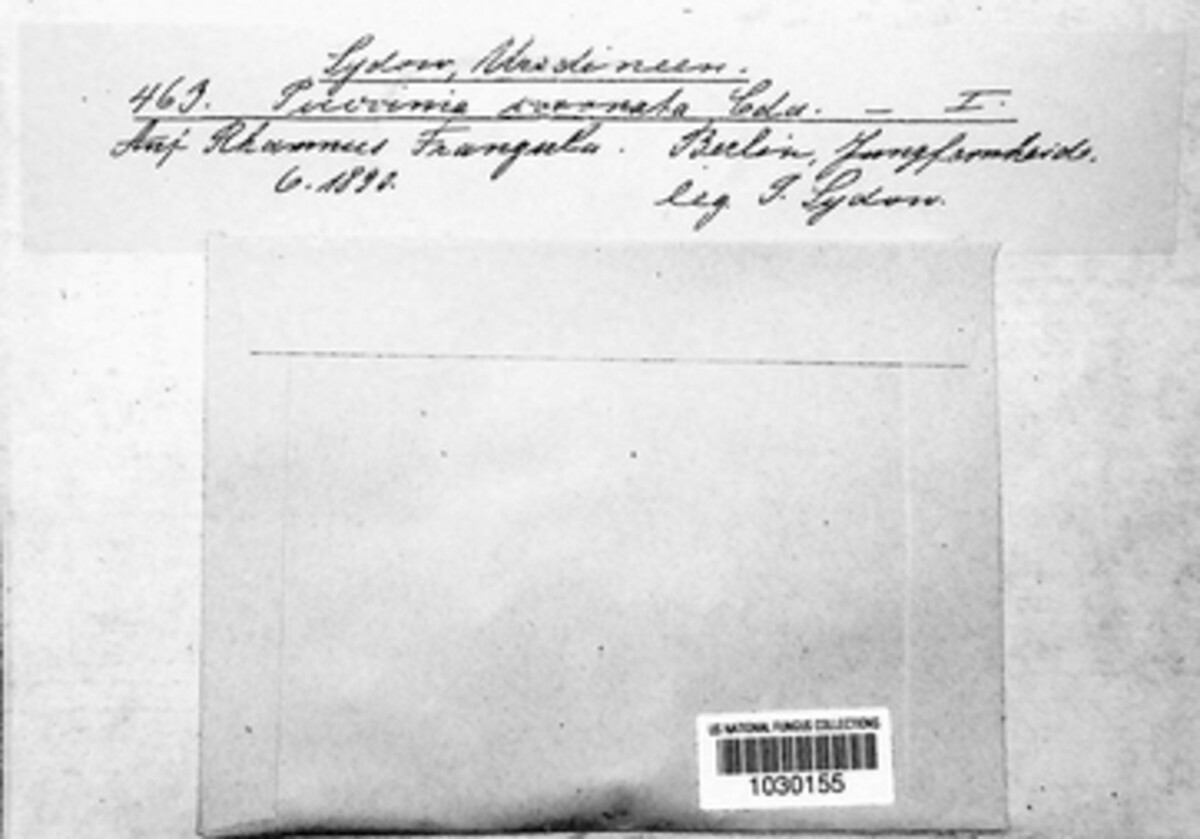 Sydow, Uredineen.
463. Puccinia coronata Cda. — I.
Auf Rhamnus Frangula. Berlin, Jungfernheide.
6. 1890.
leg. P. Sydow.
US NATIONAL FUNGUS COLLECTIONS
1030155